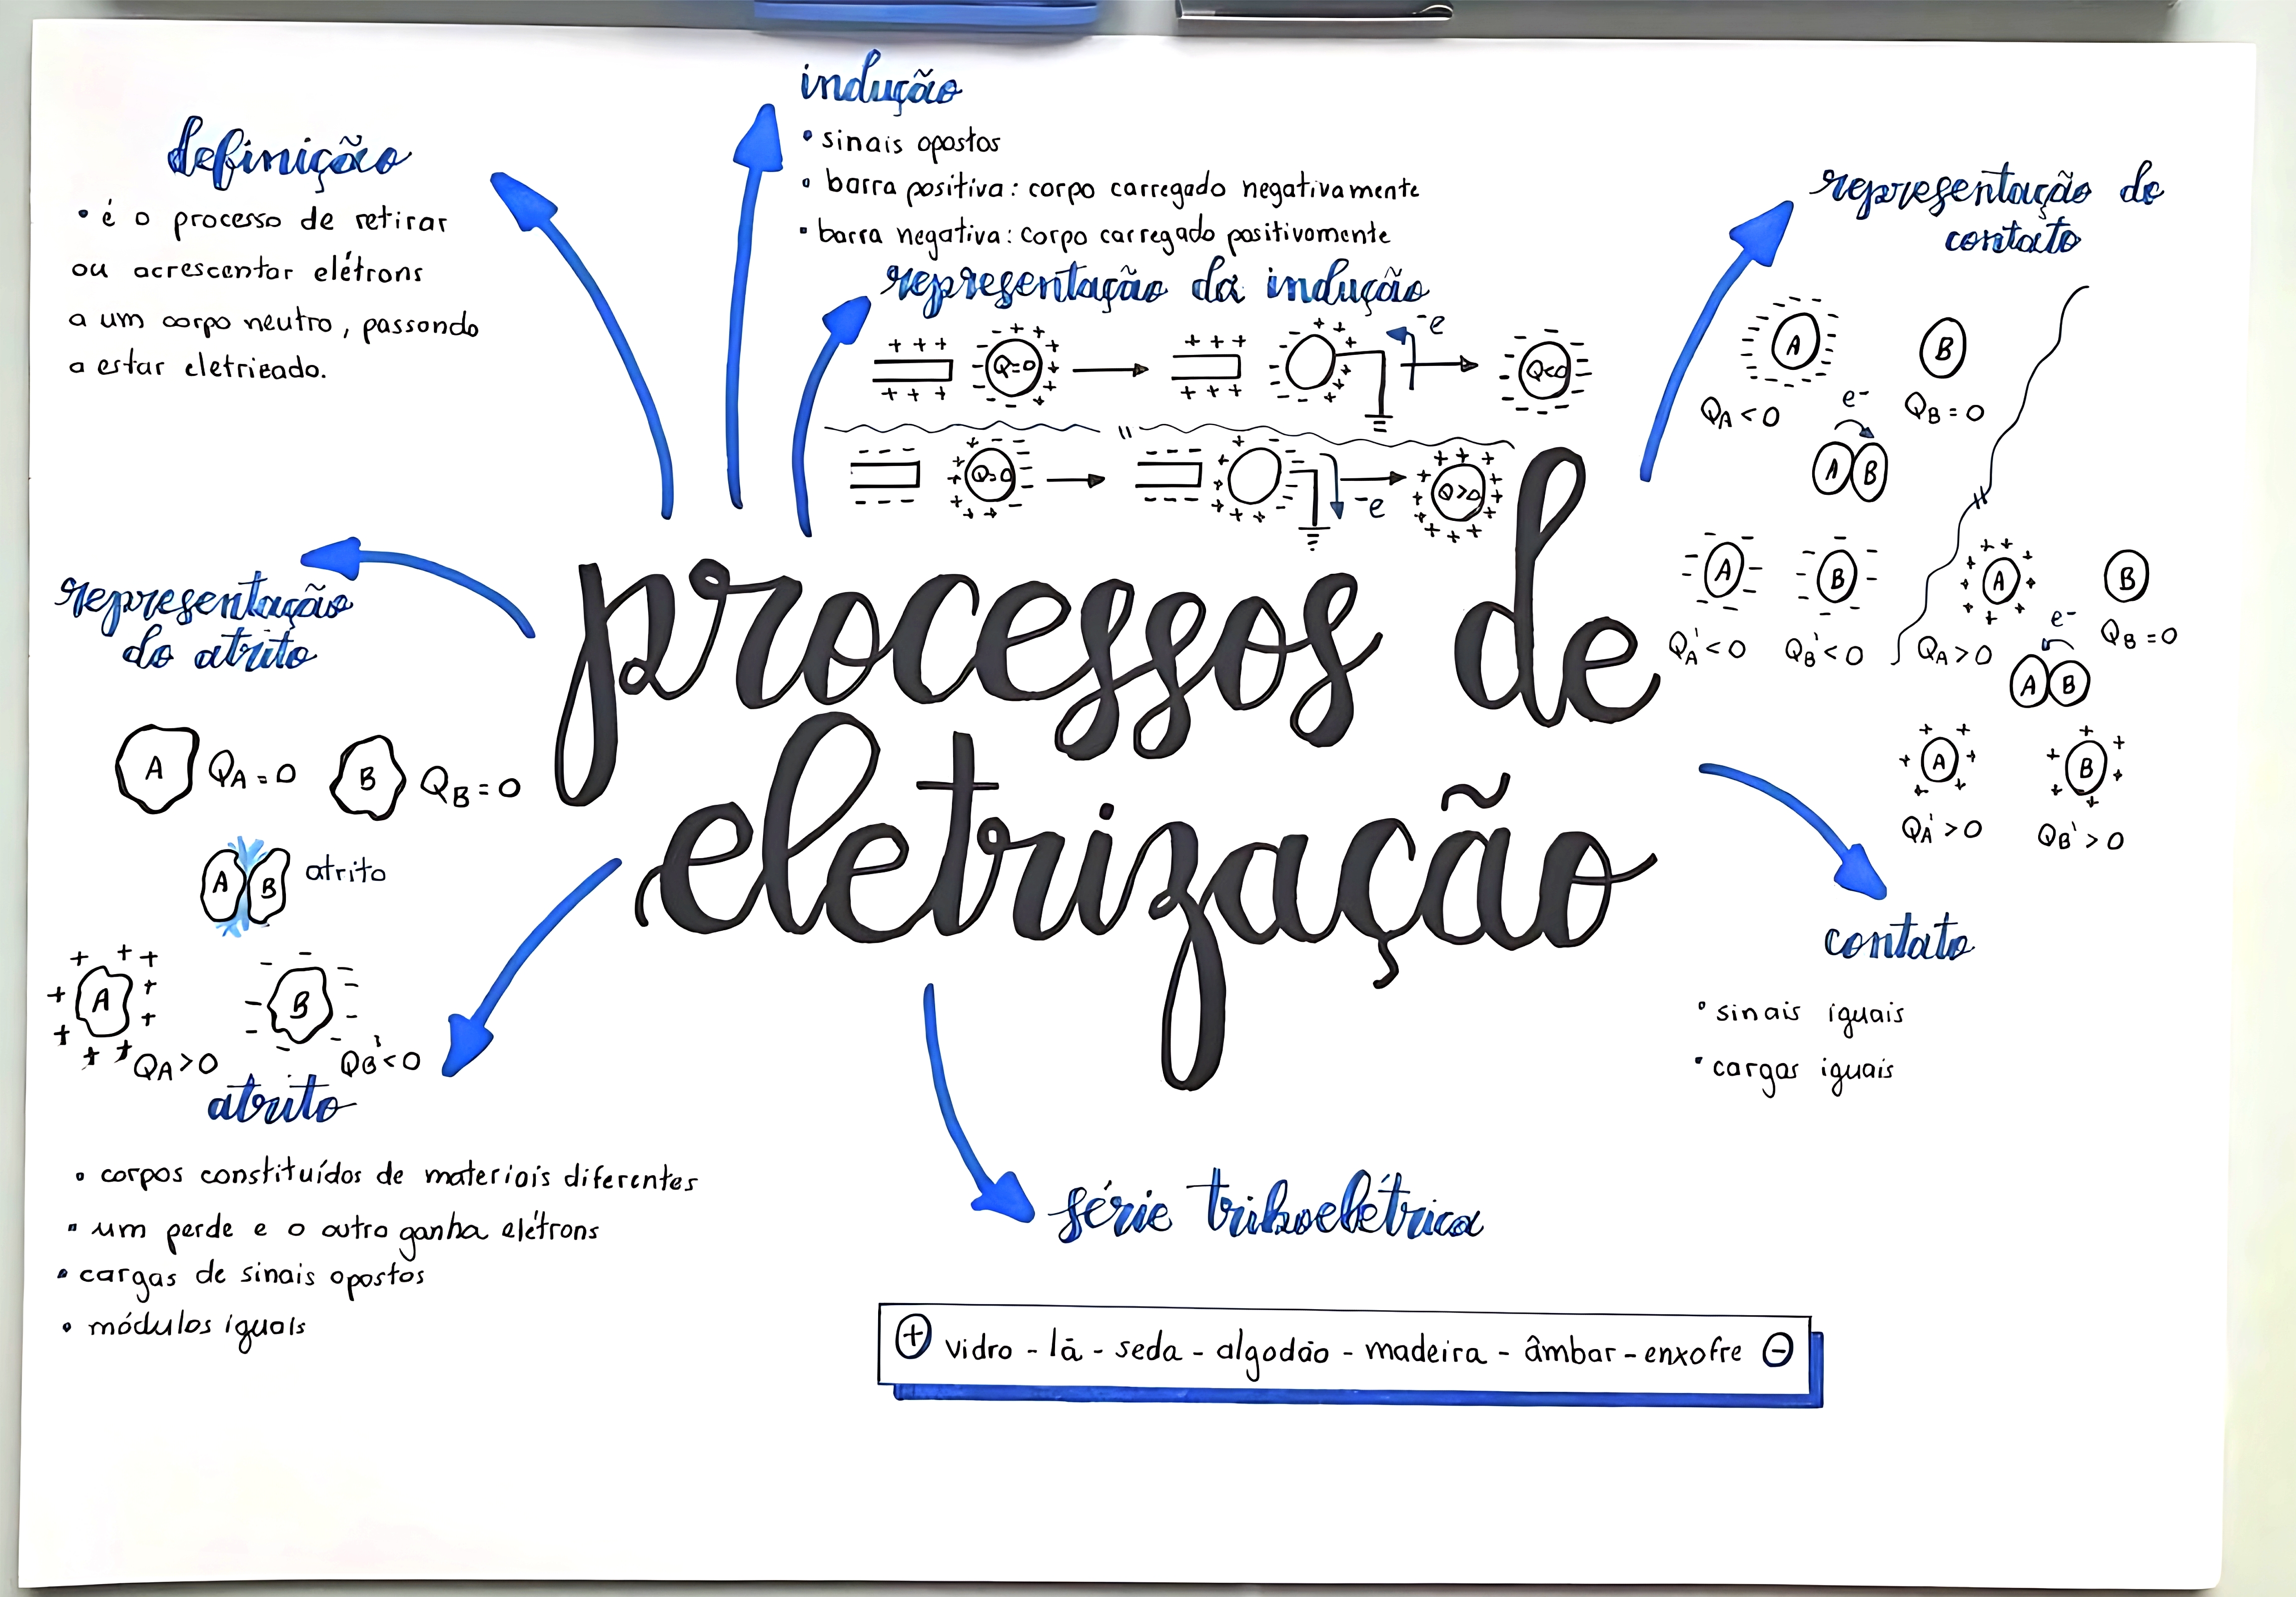 definição
• é o processo de retirar
ou acrescentar elétrons
a um corpo neutro, passando
a estar eletrizado.
indução
• sinais opostos
• barra positiva: corpo carregado negativamente
• barra negativa: corpo carregado positivamente
representação da indução
+ + + Q=0 + + + -e Q<0
Q=0 -e Q>0
representação do
contato
A B
QA < 0 QB = 0
e-
A B
A B
QA' < 0 QB' < 0
A B
QA > 0 QB = 0
e-
A B
A B
QA' > 0 QB' > 0
processos de
eletrização
representação
do atrito
A QA = 0 B QB = 0
A B atrito
A B
QA > 0 QB' < 0
atrito
• corpos constituídos de materiais diferentes
• um perde e o outro ganha elétrons
• cargas de sinais opostos
• módulos iguais
contato
• sinais iguais
• cargas iguais
série triboelétrica
+ vidro - lã - seda - algodão - madeira - âmbar - enxofre -